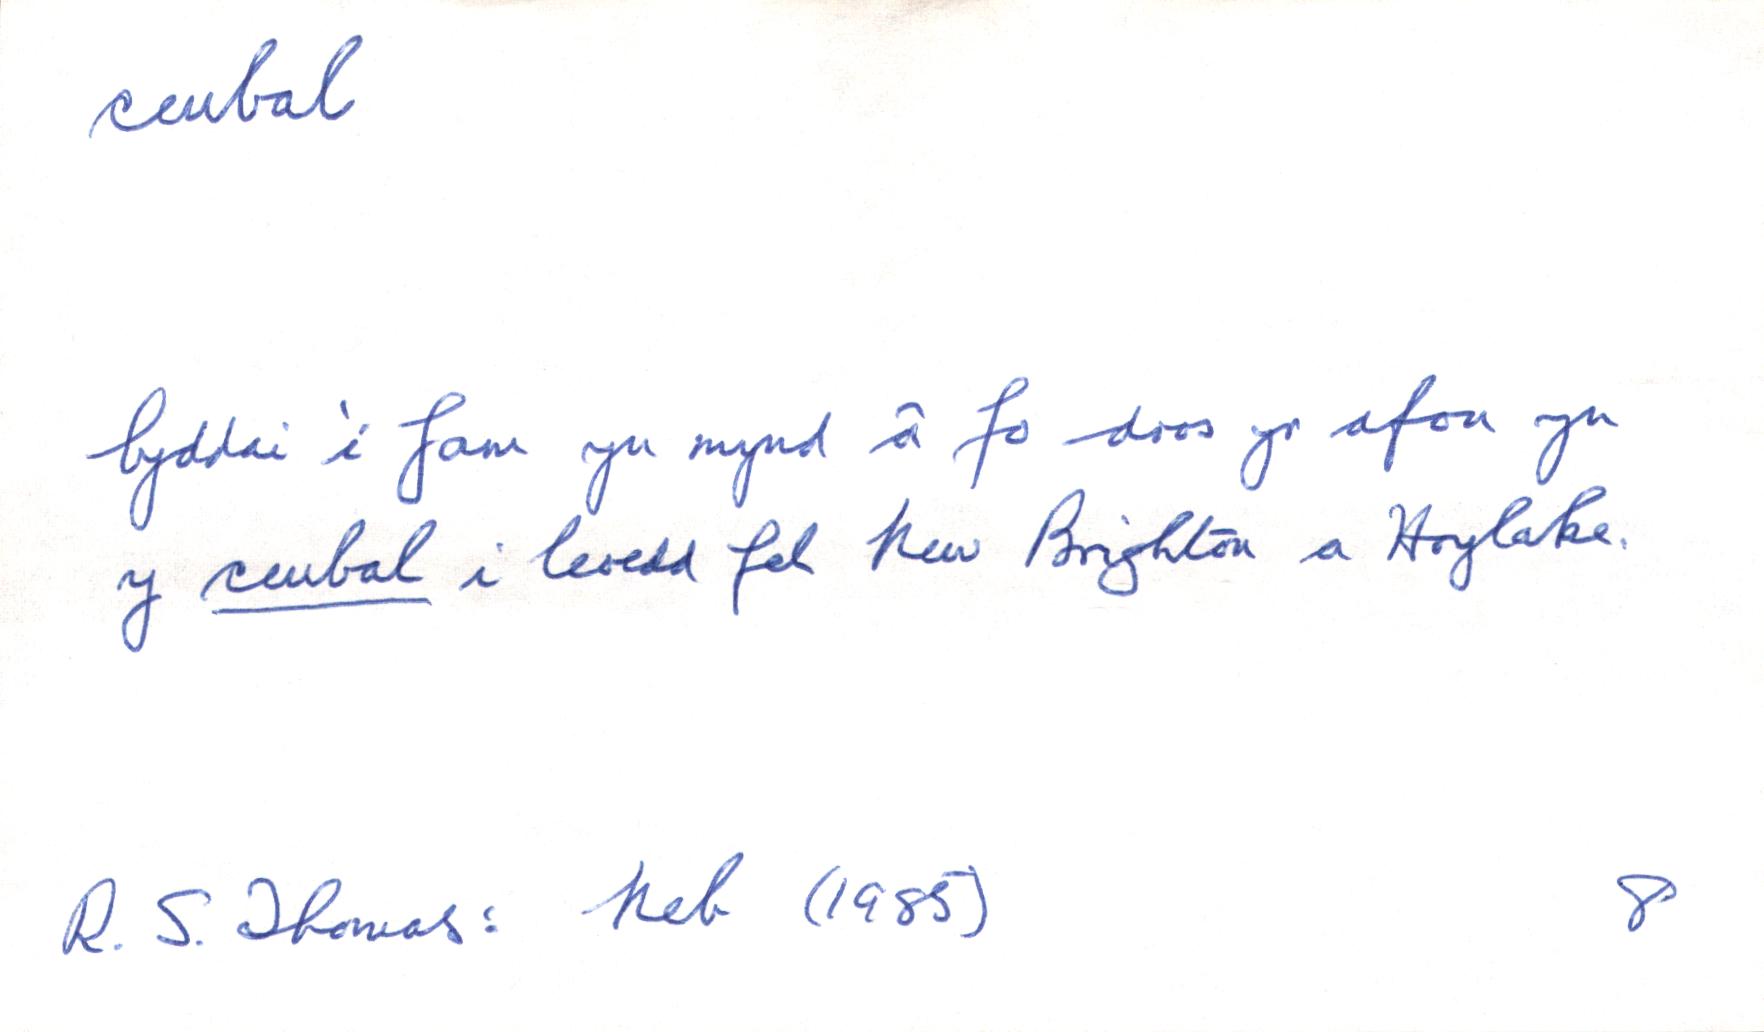 ceubal
byddai 'i fam yn mynd â fo dros yr afon yn
y ceubal i leoedd fel New Brighton a Hoylake.
R. S. Thomas: Neb (1985) 8